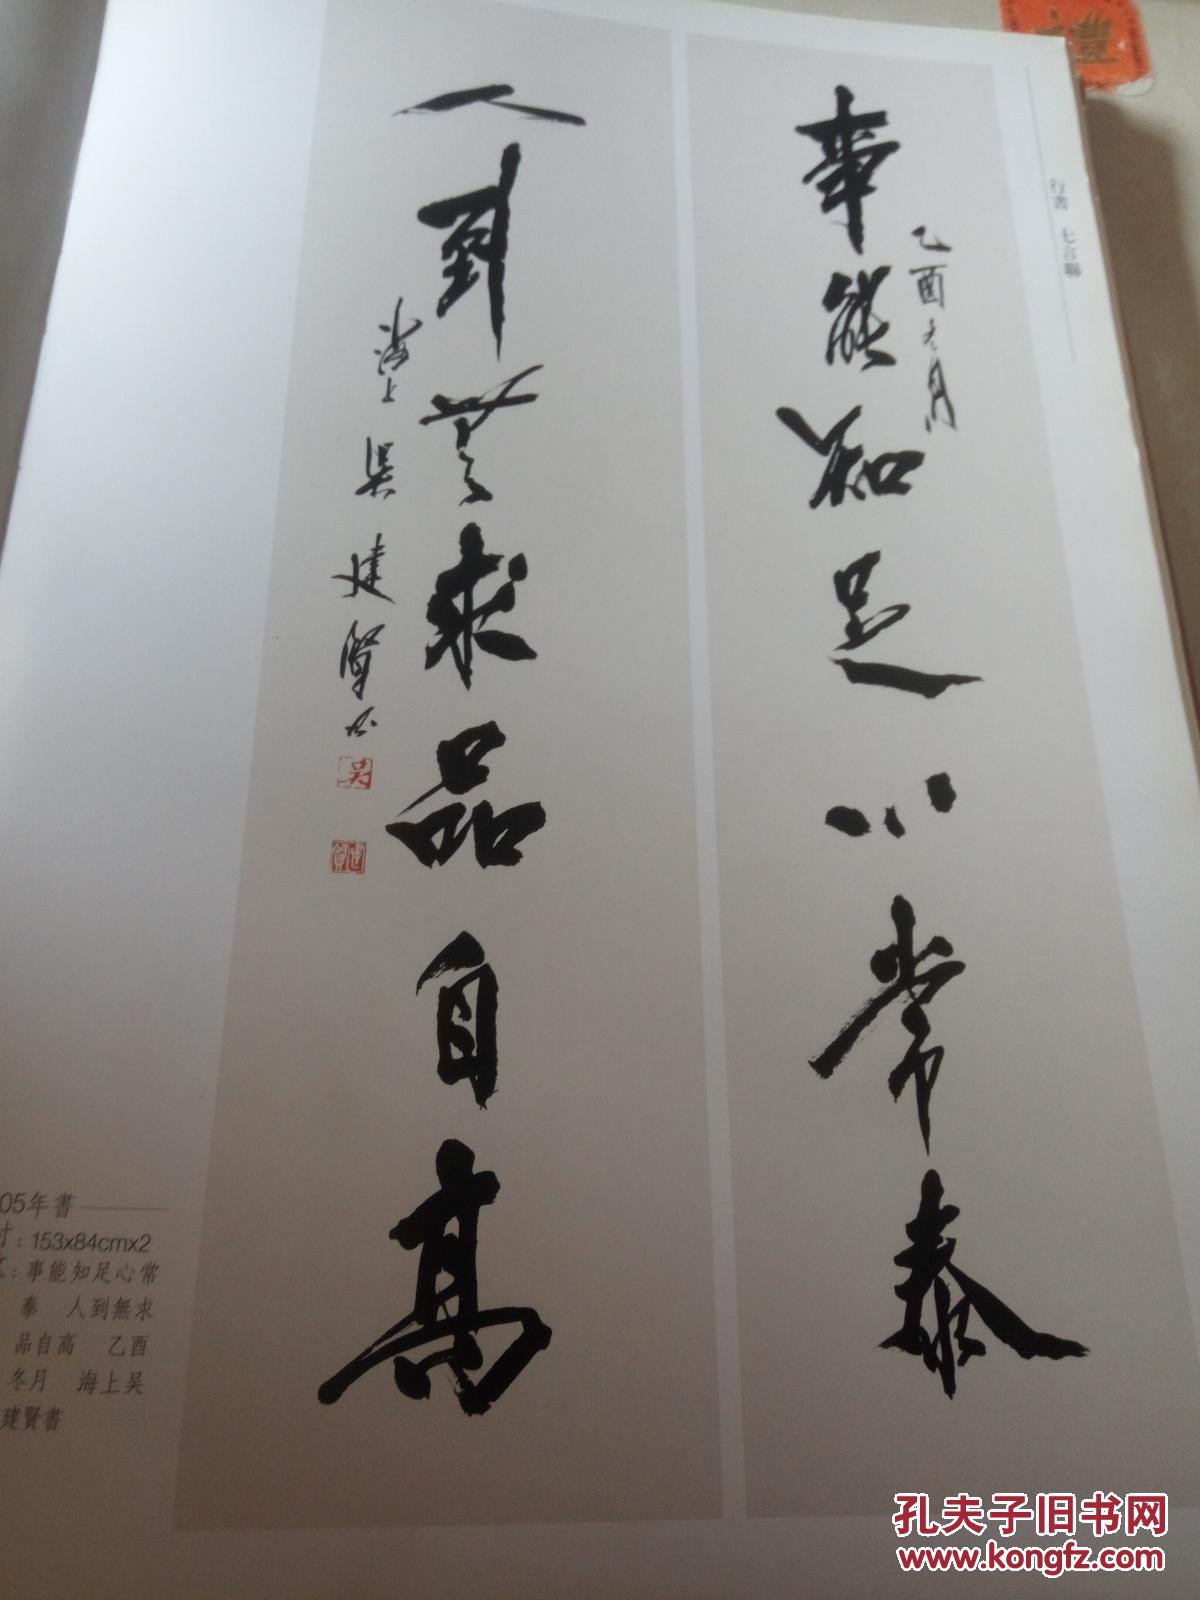 禮
行書 七言聯
事能知足心常泰
乙酉冬月
人到無求品自高
海上吴建賢書
05年書
寸：153x84cmx2
：事能知足心常
泰 人到無求
品自高 乙酉
冬月 海上吴
建賢書
孔夫子旧书网
www.kongfz.com